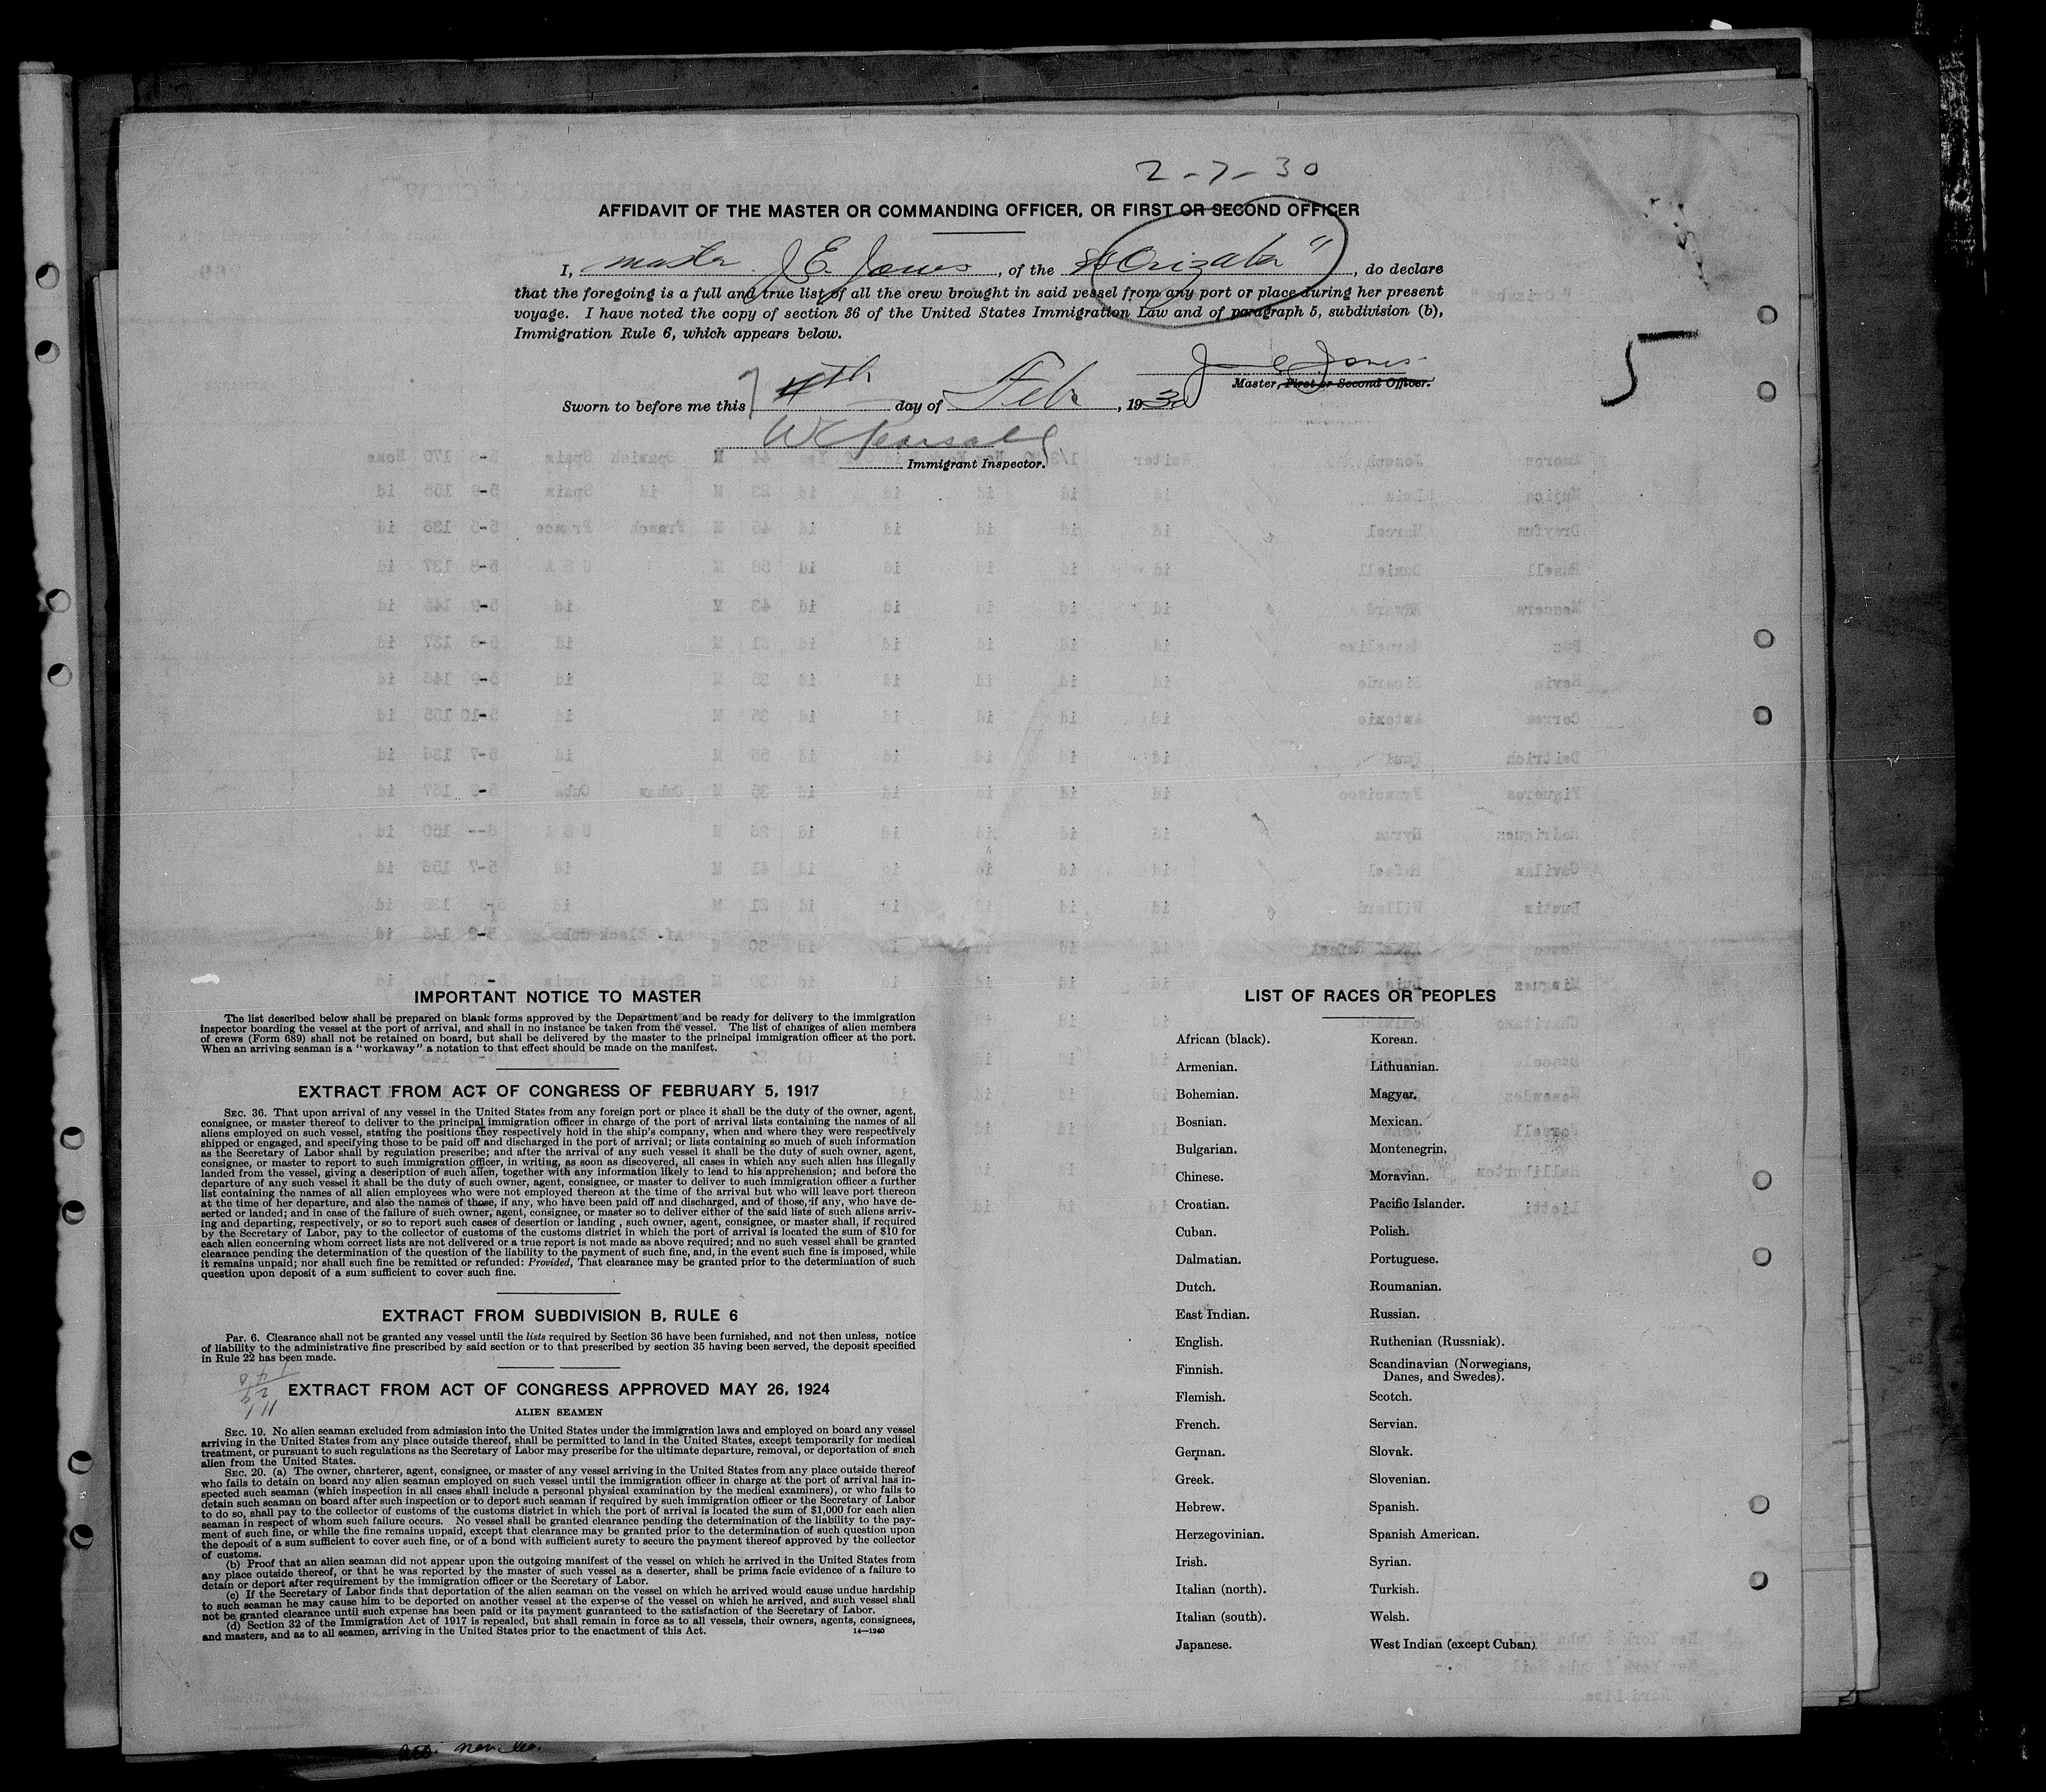 2-7-30
AFFIDAVIT OF THE MASTER OR COMMANDING OFFICER, OR FIRST OR SECOND OFFICER
I, master J.E. Jones, of the SS "Orizaba", do declare
that the foregoing is a full and true list of all the crew brought in said vessel from any port or place during her present
voyage. I have noted the copy of section 36 of the United States Immigration Law and of paragraph 5, subdivision (b),
Immigration Rule 6, which appears below.
5
Jones
Master, First or Second Officer.
Sworn to before me this 7 4th day of Feb, 1930
Immigrant Inspector.
IMPORTANT NOTICE TO MASTER
The list described below shall be prepared on blank forms approved by the Department and be ready for delivery to the immigration
inspector boarding the vessel at the port of arrival, and shall in no instance be taken from the vessel. The list of changes of alien members
of crews (Form 689) shall not be retained on board, but shall be delivered by the master to the principal immigration officer at the port.
When an arriving seaman is a "workaway" a notation to that effect should be made on the manifest.
EXTRACT FROM ACT OF CONGRESS OF FEBRUARY 5, 1917
SEC. 36. That upon arrival of any vessel in the United States from any foreign port or place it shall be the duty of the owner, agent,
consignee, or master thereof to deliver to the principal immigration officer in charge of the port of arrival lists containing the names of all
aliens employed on such vessel, stating the positions they respectively hold in the ship's company, when and where they were respectively
shipped or engaged, and specifying those to be paid off and discharged in the port of arrival; or lists containing so much of such information
as the Secretary of Labor shall by regulation prescribe; and after the arrival of any such vessel it shall be the duty of such owner, agent,
consignee, or master to report to such immigration officer, in writing, as soon as discovered, all cases in which any such alien has illegally
landed from the vessel, giving a description of such alien, together with any information likely to lead to his apprehension; and before the
departure of any such vessel it shall be the duty of such owner, agent, consignee, or master to deliver to such immigration officer a further
list containing the names of all alien employees who were not employed thereon at the time of the arrival but who will leave port thereon
at the time of her departure, and also the names of those, if any, who have been paid off and discharged, and of those, if any, who have de-
serted or landed; and in case of the failure of such owner, agent, consignee, or master so to deliver either of the said lists of such aliens arriv-
ing and departing, respectively, or so to report such cases of desertion or landing , such owner, agent, consignee, or master shall, if required
by the Secretary of Labor, pay to the collector of customs of the customs district in which the port of arrival is located the sum of $10 for
each alien concerning whom correct lists are not delivered or a true report is not made as above required; and no such vessel shall be granted
clearance pending the determination of the question of the liability to the payment of such fine, and, in the event such fine is imposed, while
it remains unpaid; nor shall such fine be remitted or refunded: Provided, That clearance may be granted prior to the determination of such
question upon deposit of a sum sufficient to cover such fine.
EXTRACT FROM SUBDIVISION B, RULE 6
Par. 6. Clearance shall not be granted any vessel until the lists required by Section 36 have been furnished, and not then unless, notice
of liability to the administrative fine prescribed by said section or to that prescribed by section 35 having been served, the deposit specified
in Rule 22 has been made.
EXTRACT FROM ACT OF CONGRESS APPROVED MAY 26, 1924
ALIEN SEAMEN
SEC. 19. No alien seaman excluded from admission into the United States under the immigration laws and employed on board any vessel
arriving in the United States from any place outside thereof, shall be permitted to land in the United States, except temporarily for medical
treatment, or pursuant to such regulations as the Secretary of Labor may prescribe for the ultimate departure, removal, or deportation of such
alien from the United States.
SEC. 20. (a) The owner, charterer, agent, consignee, or master of any vessel arriving in the United States from any place outside thereof
who fails to detain on board any alien seaman employed on such vessel until the immigration officer in charge at the port of arrival has in-
spected such seaman (which inspection in all cases shall include a personal physical examination by the medical examiners), or who fails to
detain such seaman on board after such inspection or to deport such seaman if required by such immigration officer or the Secretary of Labor
to do so, shall pay to the collector of customs of the customs district in which the port of arrival is located the sum of $1,000 for each alien
seaman in respect of whom such failure occurs. No vessel shall be granted clearance pending the determination of the liability to the pay-
ment of such fine, or while the fine remains unpaid, except that clearance may be granted prior to the determination of such question upon
the deposit of a sum sufficient to cover such fine, or of a bond with sufficient surety to secure the payment thereof approved by the collector
of customs.
(b) Proof that an alien seaman did not appear upon the outgoing manifest of the vessel on which he arrived in the United States from
any place outside thereof, or that he was reported by the master of such vessel as a deserter, shall be prima facie evidence of a failure to
detain or deport after requirement by the immigration officer or the Secretary of Labor.
(c) If the Secretary of Labor finds that deportation of the alien seaman on the vessel on which he arrived would cause undue hardship
to such seaman he may cause him to be deported on another vessel at the expense of the vessel on which he arrived, and such vessel shall
not be granted clearance until such expense has been paid or its payment guaranteed to the satisfaction of the Secretary of Labor.
(d) Section 32 of the Immigration Act of 1917 is repealed, but shall remain in force as to all vessels, their owners, agents, consignees,
and masters, and as to all seamen, arriving in the United States prior to the enactment of this Act.
14—1240
LIST OF RACES OR PEOPLES
African (black).
Armenian.
Bohemian.
Bosnian.
Bulgarian.
Chinese.
Croatian.
Cuban.
Dalmatian.
Dutch.
East Indian.
English.
Finnish.
Flemish.
French.
German.
Greek.
Hebrew.
Herzegovinian.
Irish.
Italian (north).
Italian (south).
Japanese.
Korean.
Lithuanian.
Magyar.
Mexican.
Montenegrin.
Moravian.
Pacific Islander.
Polish.
Portuguese.
Roumanian.
Russian.
Ruthenian (Russniak).
Scandinavian (Norwegians,
Danes, and Swedes).
Scotch.
Servian.
Slovak.
Slovenian.
Spanish.
Spanish American.
Syrian.
Turkish.
Welsh.
West Indian (except Cuban).